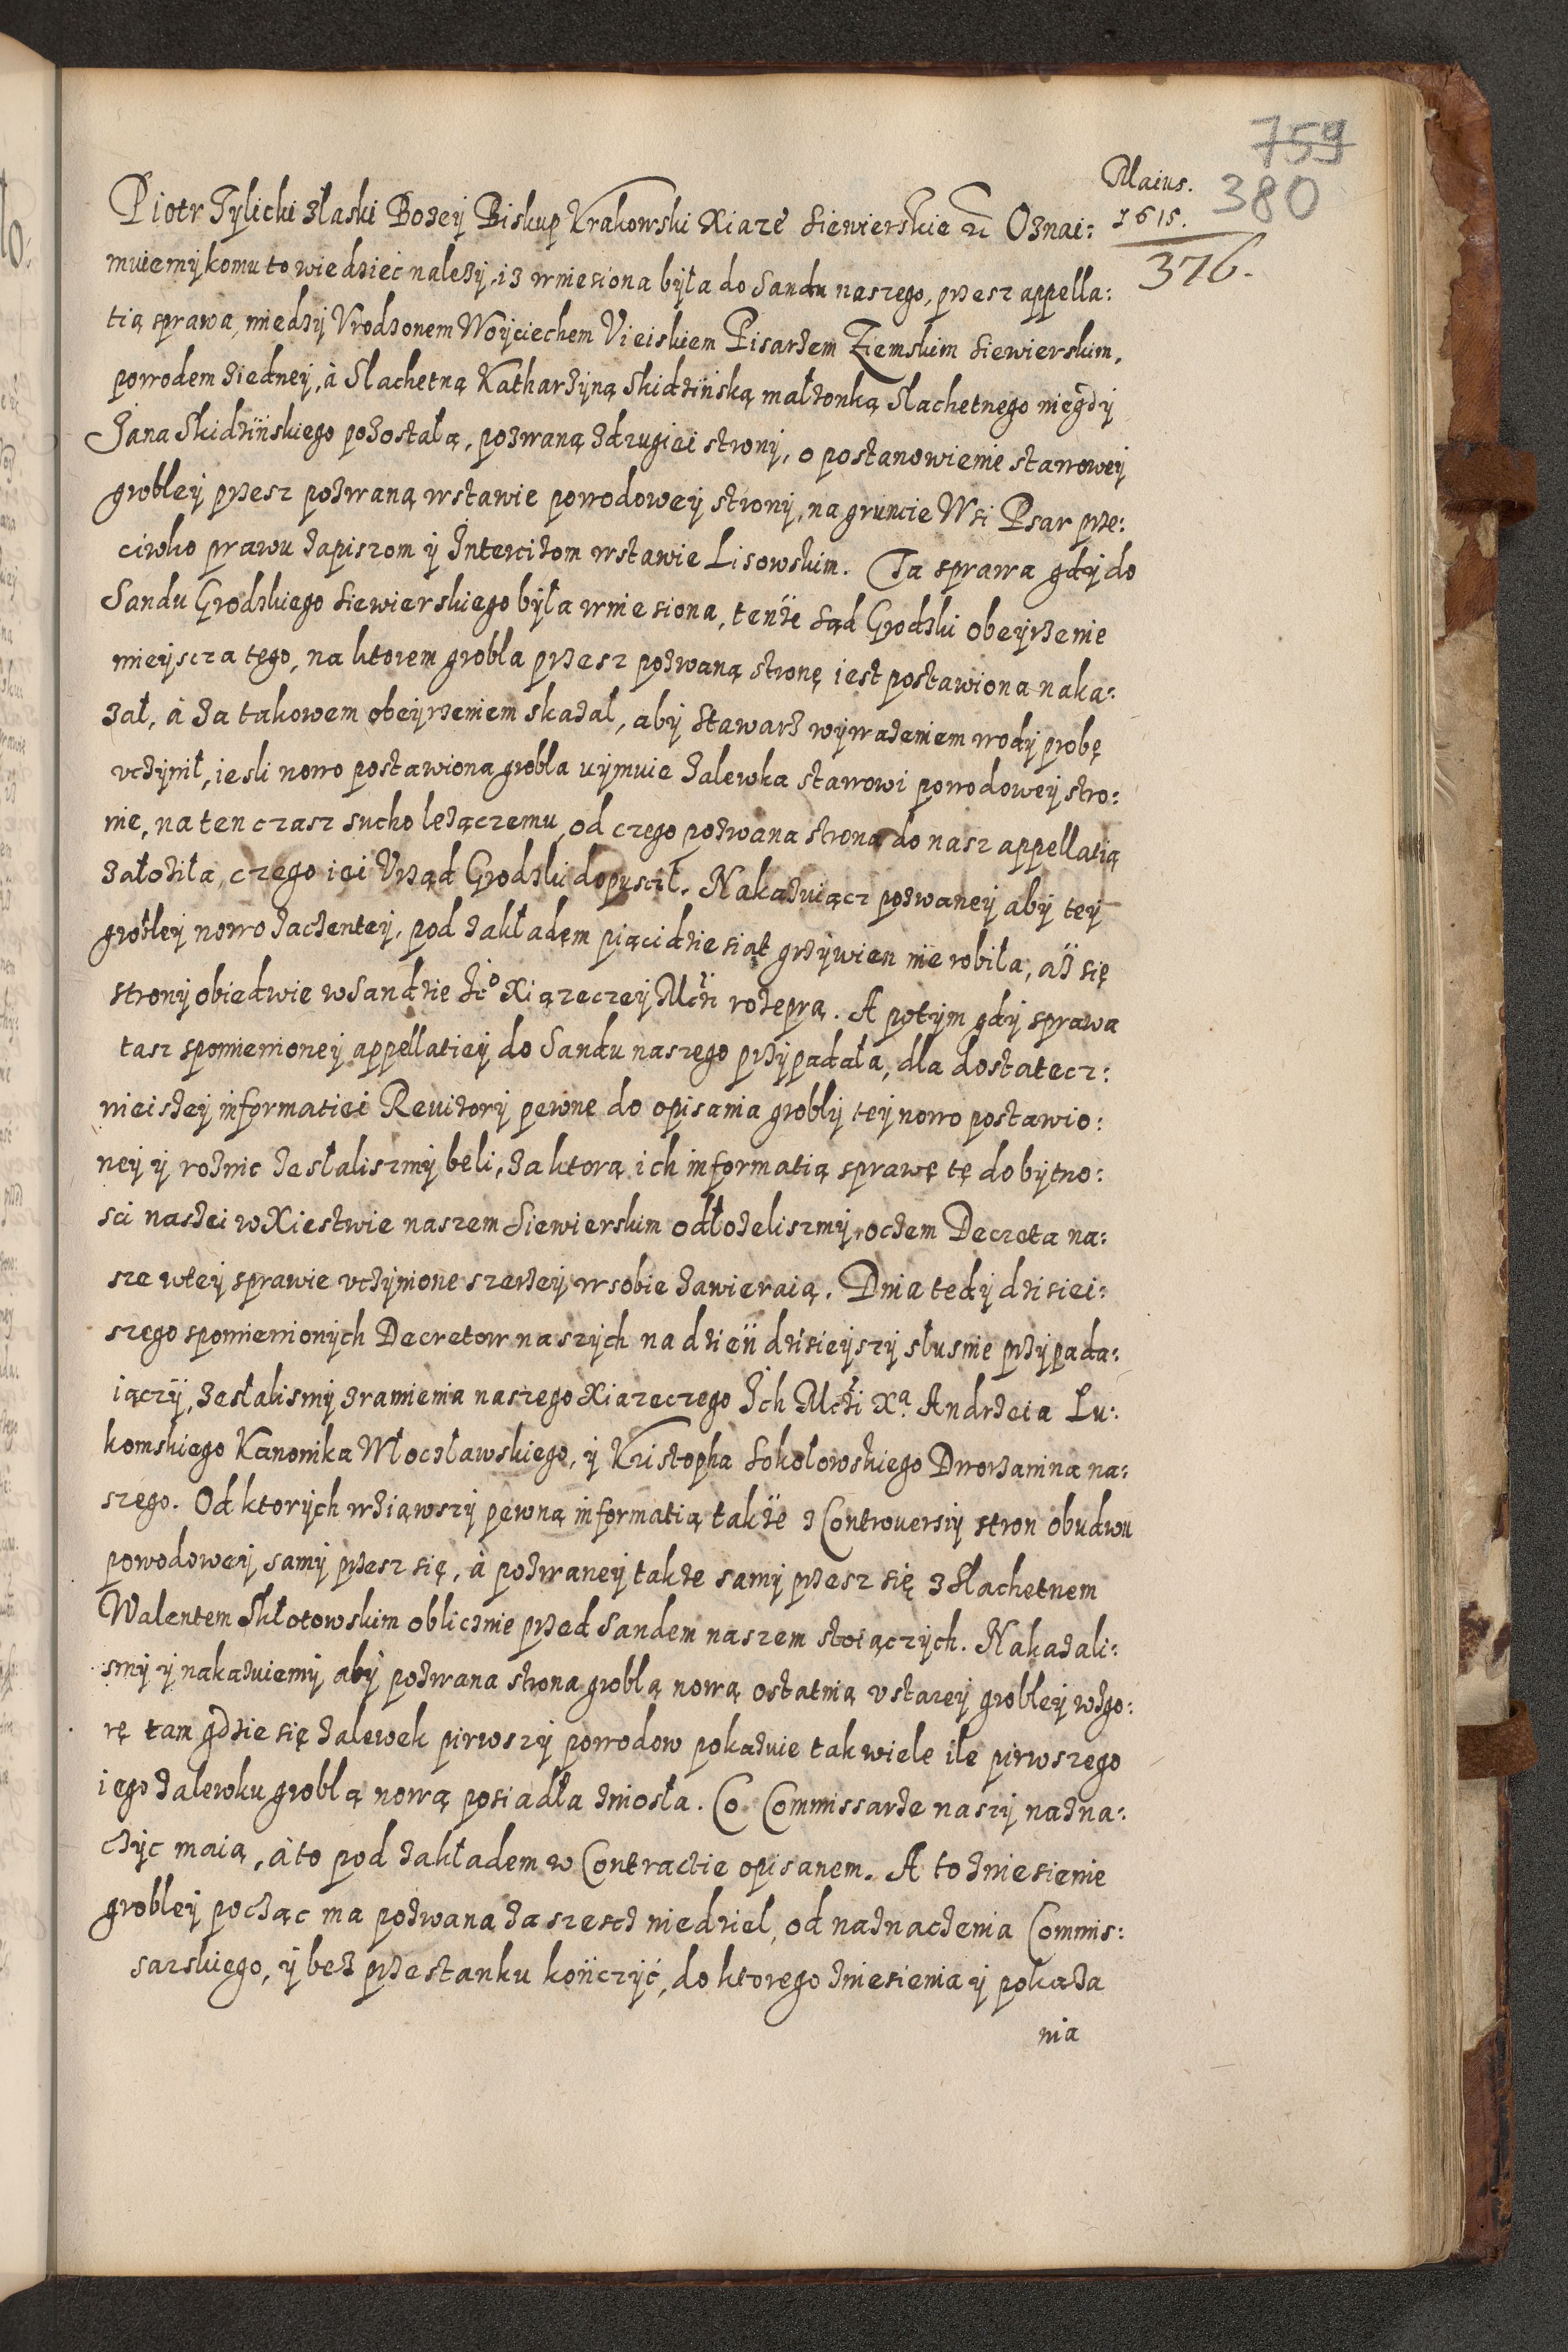 759
Maius. 380
1615.
376.
Piotr Tylicki złaski Bożey Biskup Krakowski Xiążę Siewierskie etc Oznai:
muiemy komu to wiedzieć należy, iż wniesiona była do Sandu naszego, przesz appella:
tią sprawa, miedzy Vrodzonem Woyciechem Vieiskiem Pisarzem Ziemskim Siewierskim,
powodem ziedney, à Slachetną Katharzyną Skidzińską małżonką Slachetnego niegdy
Jana Skidzińskiego pozostałą, pozwaną zdrugiei strony, o postanowienie stawowey
grobley przesz pozwaną wstawie powodowey strony, na gruncie Wsi Psar prze:
ciwko prawu zapiszom y Intercizom wstawie Lisowskim. Ta sprawa gdy do
Sandu Grodzkiego Siewierskiego była wniesiona, tenże Sąd Grodzki obeyrzenie
mieyscza tego, na ktorem grobla przesz pozwaną stronę iest postawiona naka:
zał, à za takowem obeyrzeniem skazał, aby Stawarz wyważeniem wody probę
vczynił, iesli nowo postawiona grobla uymuie zalewka stawowi powodowey stro:
nie, na ten czasz sucho leżączemu, od czego pozwana strona do nasz appellatią
założiła, czego iei Vrząd Grodzki dopuscił. Nakazuiącz pozwaney aby tey
grobley nowo zaczentey, pod zakładem piącidziesiąt grzywien nie robiła, aż się
strony obiedwie w Sandzie Jeo Xiążeczey Mczi rozeprą. A potym gdy sprawa
tasz spomienioney appellatiey do Sandu naszego przypadała, dla dostatecz:
nieiszey informatiei Reuizory pewne do opisania grobly tey nowo postawio:
ney y rożnic zesłaliszmy beli, za ktorą ich informatią sprawę tę do bytno:
sci naszei w Xiestwie naszem Siewierskim odłożeliszmy, oczem Decreta na:
sze wtey sprawie vczynione szerzey wsobie zawieraią. Dnia tedy dzisiei:
szego spomienionych Decretow naszych na dzień dzisieyszy słusnie przypada:
iączy, zesłalismy zramienia naszego Xiażeczego Ich Mczi Xa. Andrzeia Lu:
komskiego Kanonika Włoczławskiego, y Kristopha Sokołowskiego Dworzanina na:
szego. Od ktorych wziąwszy pewną informatią także z Controuersiy stron obudwu
powodowey samy przesz się, à pozwaney takze samy przesz się z Slachetnem
Walentem Skłotowskim oblicznie przed Sandem naszem stoiączych. Nakazali:
smy y nakazuiemy, aby pozwana strona groblą nową ostatnią v starey grobley wzgo:
rę tam gdzie się zalewek pirwszy powodow pokazuie tak wiele ile pirwszego
iego zalewku groblą nową posiadła zniosła. Co Commissarze naszy nazna:
czyc maią, à to pod zakładem w Contractie opisanem. A to zniesienie
grobley począc ma pozwana za szescz niedziel, od naznaczenia Commis:
sarskiego, y bez przestanku kończyć, do ktorego zniesienia y pokaza
nia